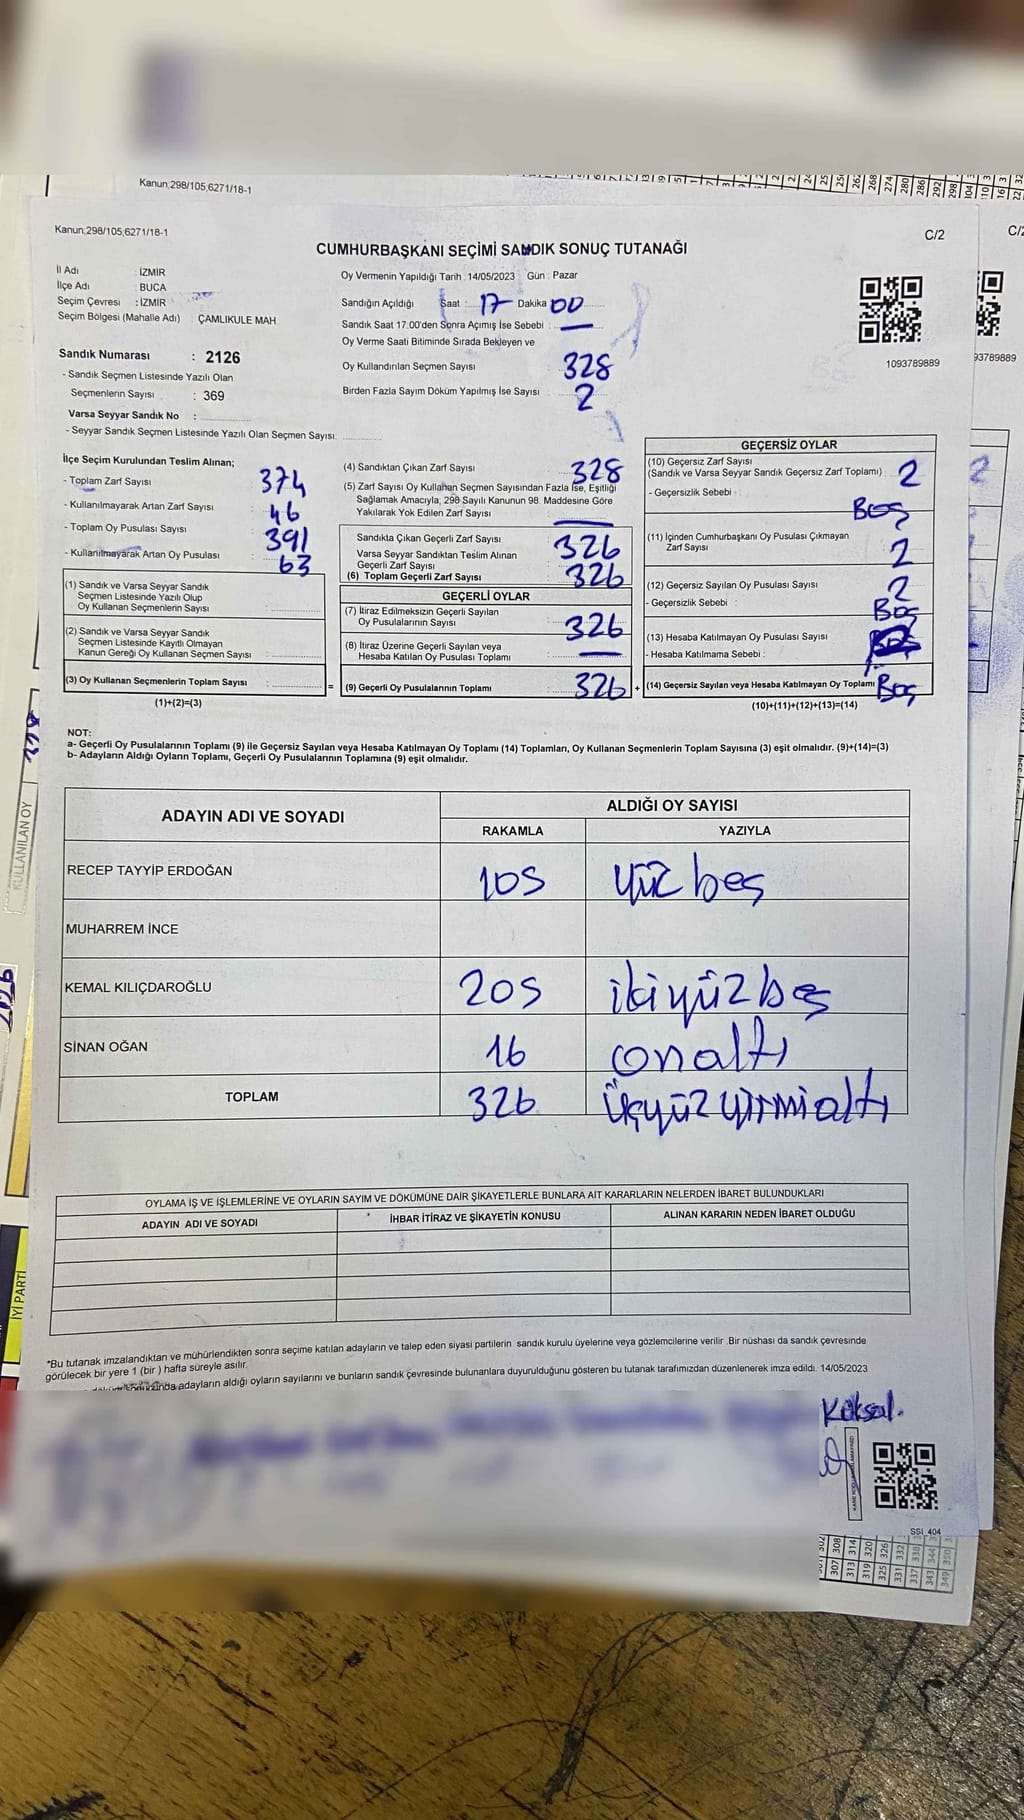 Kanun;298/105;6271/18-1
Kanun;298/105;6271/18-1
C/2
CUMHURBAŞKANI SEÇİMİ SANDIK SONUÇ TUTANAĞI
İl Adı : İZMİR
İlçe Adı : BUCA
Seçim Çevresi : İZMİR
Seçim Bölgesi (Mahalle Adı) : ÇAMLIKULE MAH
Oy Vermenin Yapıldığı Tarih : 14/05/2023 Gün : Pazar
Sandığın Açıldığı Saat : 17 Dakika 00
Sandık Saat 17:00'den Sonra Açımış İse Sebebi : —
Oy Verme Saati Bitiminde Sırada Bekleyen ve
Oy Kullandırılan Seçmen Sayısı : 328
Birden Fazla Sayım Döküm Yapılmış İse Sayısı : 2
1093789889
93789889
Sandık Numarası : 2126
- Sandık Seçmen Listesinde Yazılı Olan
Seçmenlerin Sayısı : 369
Varsa Seyyar Sandık No :
- Seyyar Sandık Seçmen Listesinde Yazılı Olan Seçmen Sayısı:
İlçe Seçim Kurulundan Teslim Alınan;
- Toplam Zarf Sayısı 374
- Kullanılmayarak Artan Zarf Sayısı 46
- Toplam Oy Pusulası Sayısı 391
- Kullanılmayarak Artan Oy Pusulası 63
(1) Sandık ve Varsa Seyyar Sandık
Seçmen Listesinde Yazılı Olup
Oy Kullanan Seçmenlerin Sayısı :
(2) Sandık ve Varsa Seyyar Sandık
Seçmen Listesinde Kayıtlı Olmayan
Kanun Gereği Oy Kullanan Seçmen Sayısı :
(3) Oy Kullanan Seçmenlerin Toplam Sayısı : =
(1)+(2)=(3)
(4) Sandıktan Çıkan Zarf Sayısı : 328
(5) Zarf Sayısı Oy Kullanan Seçmen Sayısından Fazla İse, Eşitliği
Sağlamak Amacıyla, 298 Sayılı Kanunun 98. Maddesine Göre
Yakılarak Yok Edilen Zarf Sayısı —
Sandıkta Çıkan Geçerli Zarf Sayısı : 326
Varsa Seyyar Sandıktan Teslim Alınan
Geçerli Zarf Sayısı :
(6) Toplam Geçerli Zarf Sayısı : 326
GEÇERLİ OYLAR
(7) İtiraz Edilmeksizin Geçerli Sayılan
Oy Pusulalarının Sayısı : 326
(8) İtiraz Üzerine Geçerli Sayılan veya
Hesaba Katılan Oy Pusulası Toplamı : —
(9) Geçerli Oy Pusulalarının Toplamı : 326 +
GEÇERSİZ OYLAR
(10) Geçersiz Zarf Sayısı
(Sandık ve Varsa Seyyar Sandık Geçersiz Zarf Toplamı) : 2
- Geçersizlik Sebebi : Boş
(11) İçinden Cumhurbaşkanı Oy Pusulası Çıkmayan
Zarf Sayısı 2
(12) Geçersiz Sayılan Oy Pusulası Sayısı 2
- Geçersizlik Sebebi : Boş
(13) Hesaba Katılmayan Oy Pusulası Sayısı
- Hesaba Katılmama Sebebi :
(14) Geçersiz Sayılan veya Hesaba Katılmayan Oy Toplamı : Boş
(10)+(11)+(12)+(13)=(14)
NOT:
a- Geçerli Oy Pusulalarının Toplamı (9) ile Geçersiz Sayılan veya Hesaba Katılmayan Oy Toplamı (14) Toplamları, Oy Kullanan Seçmenlerin Toplam Sayısına (3) eşit olmalıdır. (9)+(14)=(3)
b- Adayların Aldığı Oyların Toplamı, Geçerli Oy Pusulalarının Toplamına (9) eşit olmalıdır.
KULLANILAN OY
ADAYIN ADI VE SOYADI
ALDIĞI OY SAYISI
RAKAMLA YAZIYLA
RECEP TAYYİP ERDOĞAN 105 yüz beş
MUHARREM İNCE
KEMAL KILIÇDAROĞLU 205 ikiyüzbeş
SİNAN OĞAN 16 onaltı
TOPLAM 326 Üçyüzyirmialtı
OYLAMA İŞ VE İŞLEMLERİNE VE OYLARIN SAYIM VE DÖKÜMÜNE DAİR ŞİKAYETLERLE BUNLARA AİT KARARLARIN NELERDEN İBARET BULUNDUKLARI
ADAYIN ADI VE SOYADI İHBAR İTİRAZ VE ŞİKAYETİN KONUSU ALINAN KARARIN NEDEN İBARET OLDUĞU
İYİ PARTİ
*Bu tutanak imzalandıktan ve mühürlendikten sonra seçime katılan adayların ve talep eden siyasi partilerin sandık kurulu üyelerine veya gözlemcilerine verilir. Bir nüshası da sandık çevresinde
görülecek bir yere 1 (bir ) hafta süreyle asılır.
adayların aldığı oyların sayılarını ve bunların sandık çevresinde bulunanlara duyurulduğunu gösteren bu tutanak tarafımızdan düzenlenerek imza edildi. 14/05/2023
Köksal.
SSI_404
307 308
313 314
319 320
325 326
331 332
337 338
343 344
349 350